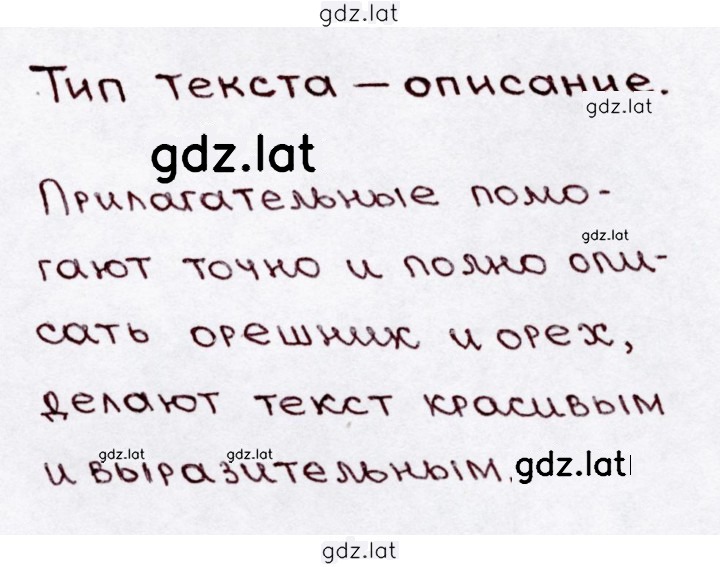 gdz.lat
Тип текста — описание.
gdz.lat
gdz.lat
Прилагательные помо-
gdz.lat
гают точно и полно опи-
сать орешник и орех,
делают текст красивым
gdz.lat gdz.lat
и выразительным. gdz.lat
gdz.lat